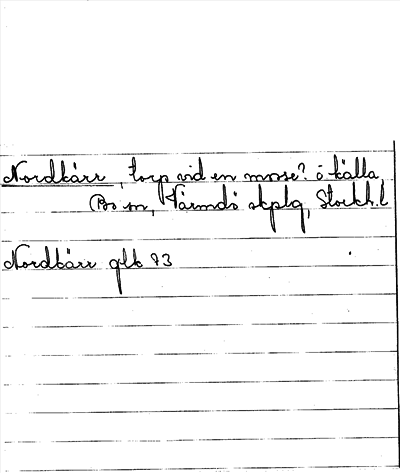 Nordkärr, torp vid en mosse? o källa,
Bo sn, Värmdö skplg, Stockh. l
Nordkärr glb 93